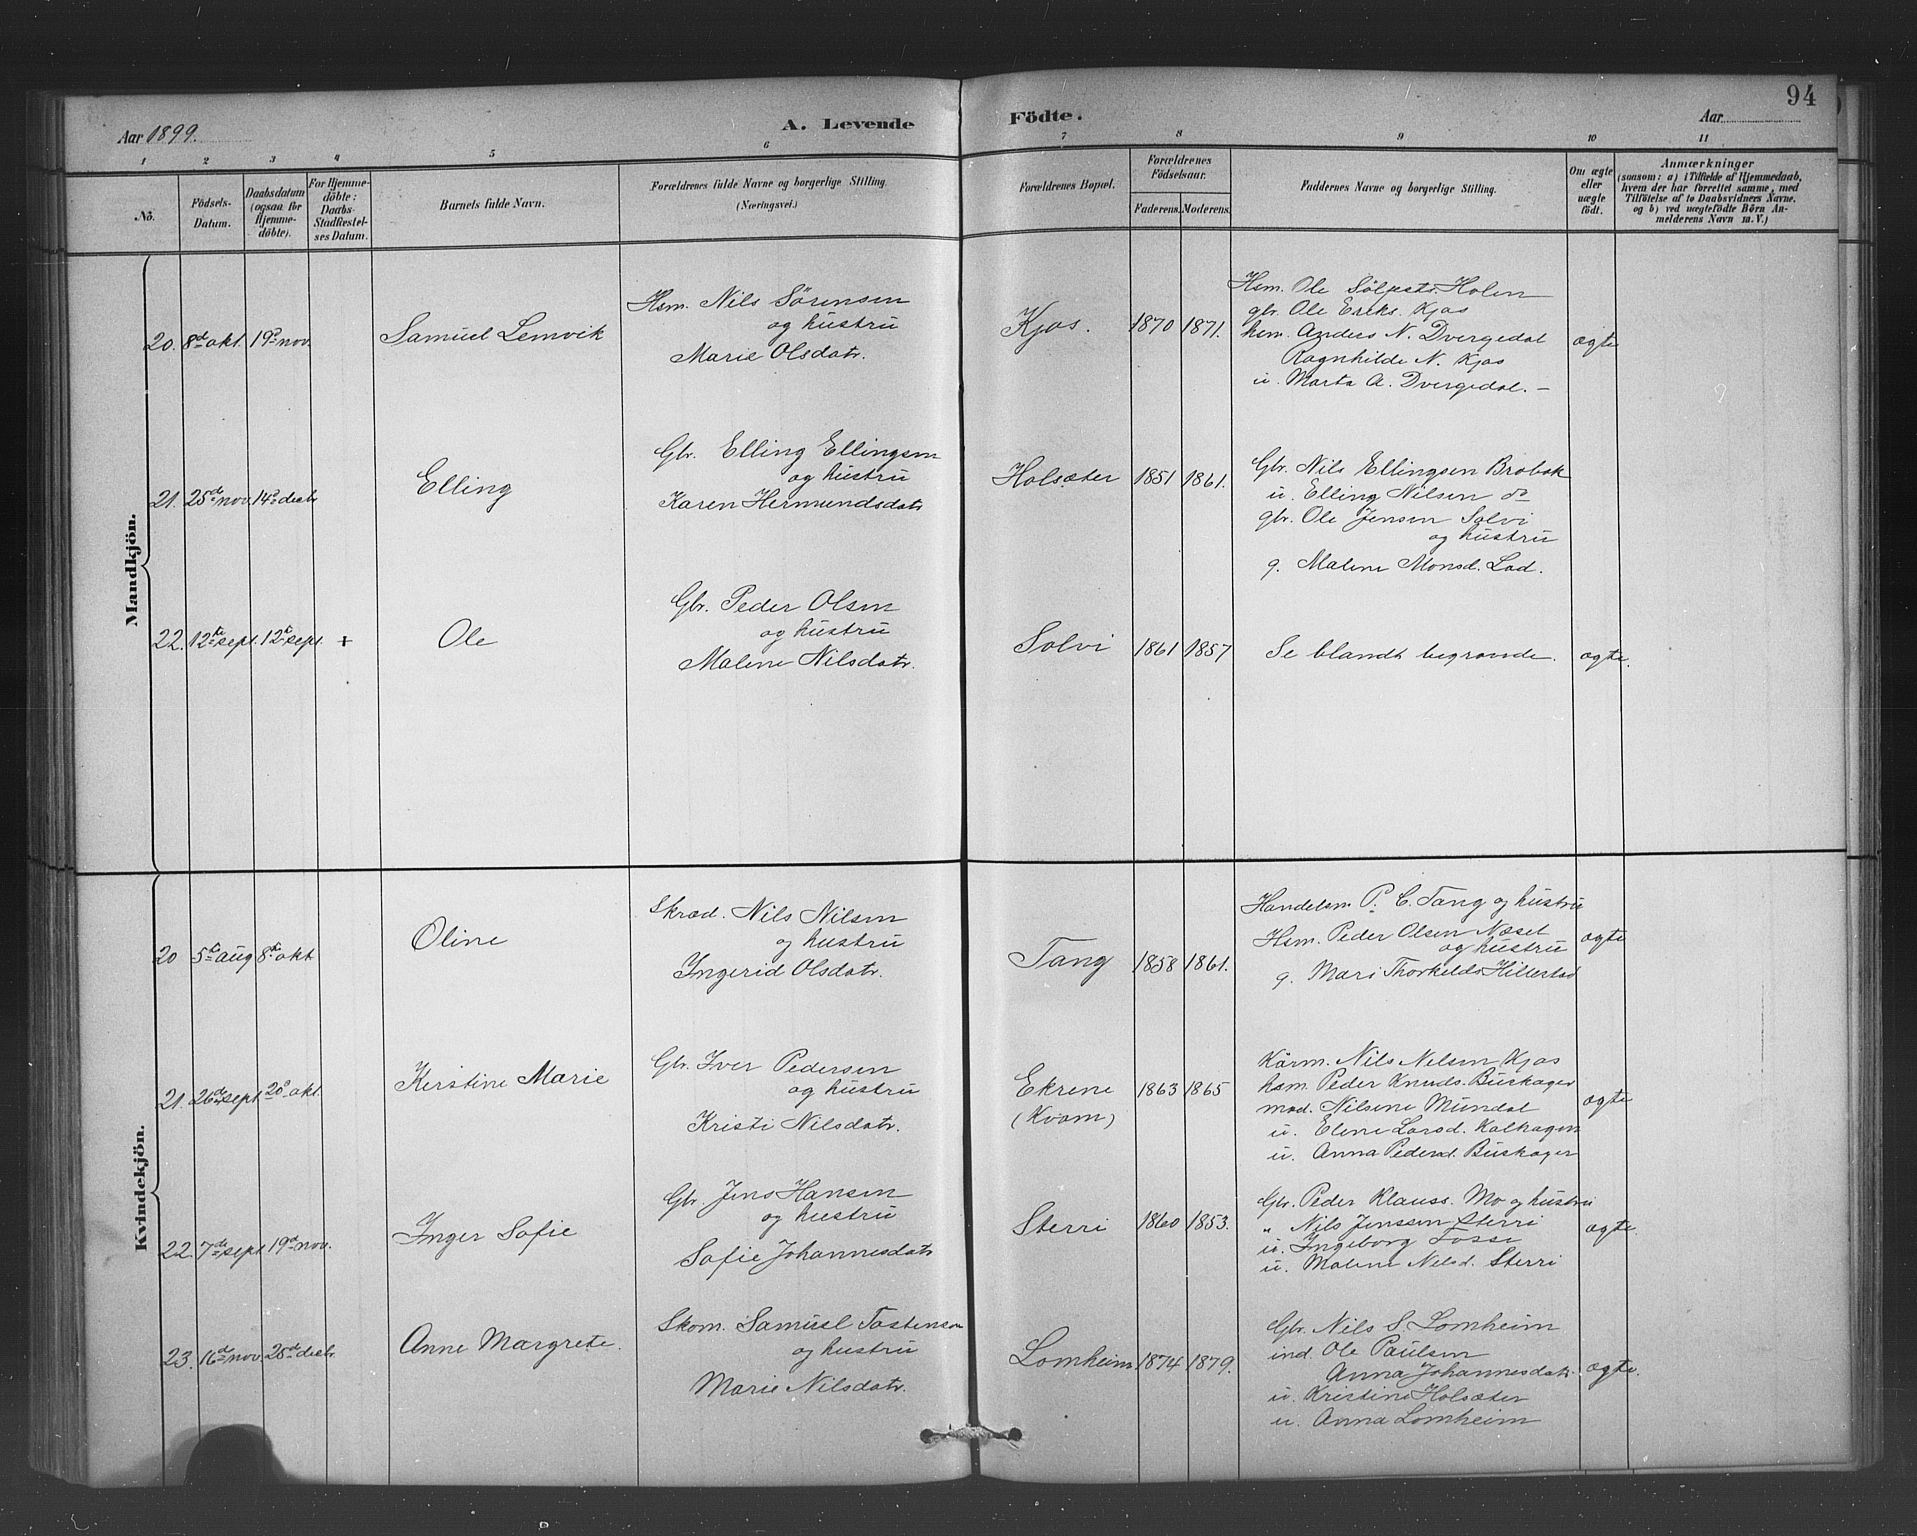 94
Aar 1899.
A. Levende Födte.
Aar
1 2 3 4 5 6 7 8 9 10 11
Nô.
Födsels-Datum.
Daabsdatum (ogsaa for Hjemme-döbte).
For Hjemme-döbte: Daabs-Stadfæstel-ses Datum.
Barnets fulde Navn.
Forældrenes fulde Navne og borgerlige Stilling. (Næringsvei.)
Forældrenes Bopæl.
Forældrenes Födselsaar.
Faderens. Moderens.
Faddernes Navne og borgerlige Stilling.
Om ægte eller uægte födt.
Anmærkninger
(saasom: a) i Tilfælde af Hjemmedaab, hvem der har forrettet samme, med Tilföielse af to Daabsvidners Navne, og b) ved uægtefödte Börn An-melderens Navn m. V.)
Mandkjön.
20. 8de okt. 19de nov. Samuel Lemvik
Hsm. Nils Sörensen
og hustru
Marie Olsdatr.
Kjos. 1870 1871.
Hsm. Ole Holen
gbr. Ole Eriks. Kjos
hsm. Anders N. Dvergedal
Ragnhilde N. Kjos
u. Marta A. Dvergedal. –
ægte
21. 25de nov. 14de decbr. Elling
Gbr. Elling Ellingsen
og hustru
Karen Hermundsdatr
Holsæter 1851 1861.
Gbr. Nils Ellingsen Brobak
u. Elling Nilsen do
gbr. Ole Jensen Solvi
og hustru
g. Malene Monsd. Lad.
22. 12te sept. 12te sept. + Ole
Gbr. Peder Olsen
og hustru
Malene Nilsdatr.
Solvi 1861 1857
Se blandt begravede.
ægte.
Kvindekjön.
20 5te aug 8de okt Oline
Skræd. Nils Nilsen
og hustru
Ingerid Olsdatr.
Tang 1858 1861.
Handelsm P. C. Tang og hustru
Hsm. Peder Olsen Næset
og hustru
g. Mari Thorkilds Hillestad
ægte
21. 26de sept 20de okt. Kerstine Marie
Gbr. Iver Pedersen
og hustru
Kristi Nilsdatr.
Ekrene
(Kvam)
1863 1865
Kårm. Nils Nilsen Kjos
hsm. Peder Knuds. Buskager
mad. Nilsine Mundal
u. Eline Larsd. Kalhagen
u. Anna Pedersd. Buskager
ægte
22. 7de sept 19de nov. Inger Sofie
Gbr. Jens Hansen
og hustru
Sofie Johannesdatr
Sterri 1860 1853.
Gbr. Peder Klauss. Mo og hustru
" Nils Jenssen Sterri
u. Ingeborg Fosse
u. Malene Nilsd. Sterri
ægte
23. 16de nov. 28de decbr. Anne Margrete.
Skom. Samuel Tostenson
og hustru
Marie Nilsdatr.
Lomheim 1874 1879.
Gbr. Nils S. Lomheim
ind. Ole Paulsen
Anna Johannesdatr.
u. Kristine Holsæter
u. Anna Lomheim
ægte.